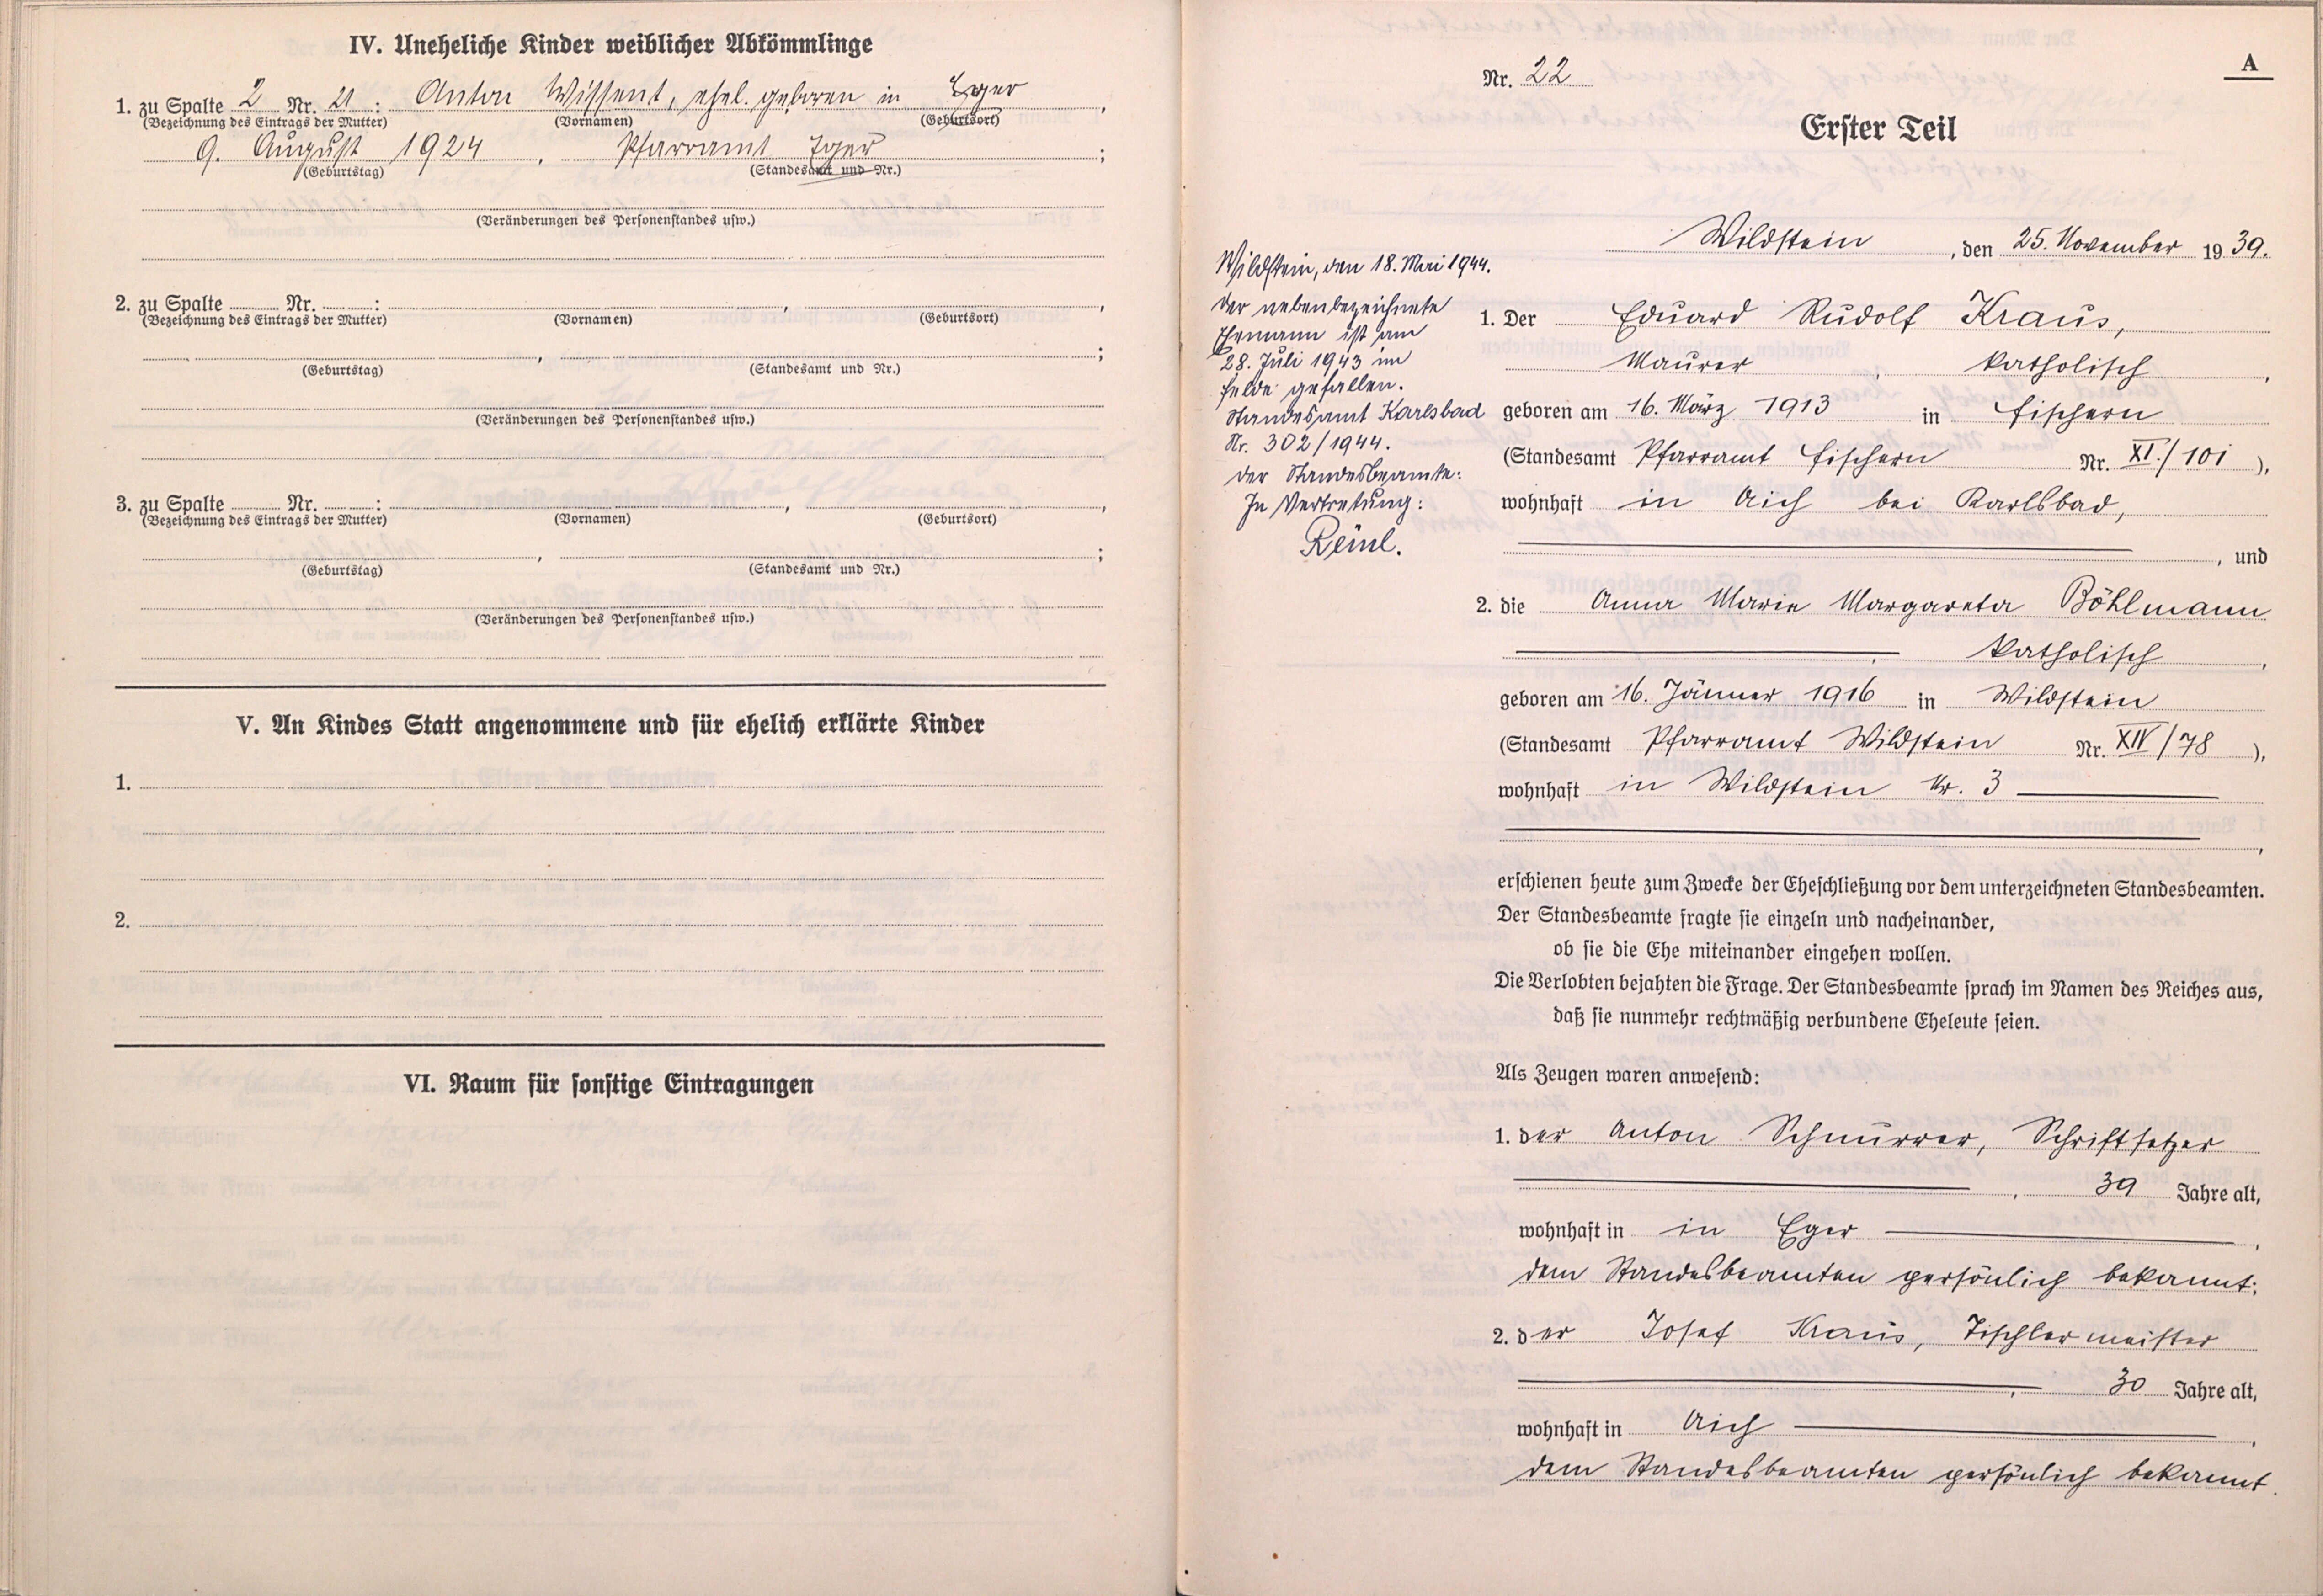 IV. Uneheliche Kinder weiblicher Abkömmlinge
1. zu Spalte 2 Nr. 21 : Anton Wissent, ehel. geboren in Eger ,
(Bezeichnung des Eintrags der Mutter) (Vornamen) (Geburtsort)
9. August 1924 , Pfarramt Eger ;
(Geburtstag) (Standesamt und Nr.)
(Veränderungen des Personenstandes usw.)
2. zu Spalte Nr. : , ,
(Bezeichnung des Eintrags der Mutter) (Vornamen) (Geburtsort)
, ;
(Geburtstag) (Standesamt und Nr.)
(Veränderungen des Personenstandes usw.)
3. zu Spalte Nr. : , ,
(Bezeichnung des Eintrags der Mutter) (Vornamen) (Geburtsort)
, ;
(Geburtstag) (Standesamt und Nr.)
(Veränderungen des Personenstandes usw.)
V. An Kindes Statt angenommene und für ehelich erklärte Kinder
1.
2.
VI. Raum für sonstige Eintragungen
A
Nr. 22
Erster Teil
Wildstein , den 25. November 19 39.
Wildstein, den 18. Mai 1944.
Der nebenbezeichnete
Ehemann ist am
28. Juli 1943 im
Felde gefallen.
Standesamt Karlsbad
Nr. 302/1944.
Der Standesbeamte:
In Vertretung:
Reinl.
1. Der Eduard Rudolf Kraus,
Maurer , katholisch ,
geboren am 16. März 1913 in Fischern
(Standesamt Pfarramt Fischern Nr. XI./101 ),
wohnhaft in Aich bei Karlsbad,
, und
2. die Anna Maria Margareta Böhlmann
, katholisch ,
geboren am 16. Jänner 1916 in Wildstein
(Standesamt Pfarramt Wildstein Nr. XIV/78 ),
wohnhaft in Wildstein Nr. 3
,
erschienen heute zum Zwecke der Eheschließung vor dem unterzeichneten Standesbeamten.
Der Standesbeamte fragte sie einzeln und nacheinander,
ob sie die Ehe miteinander eingehen wollen.
Die Verlobten bejahten die Frage. Der Standesbeamte sprach im Namen des Reiches aus,
daß sie nunmehr rechtmäßig verbundene Eheleute seien.
Als Zeugen waren anwesend:
1. der Anton Schnurrer, Schriftsetzer
, 39 Jahre alt,
wohnhaft in in Eger ,
dem Standesbeamten persönlich bekannt;
2. der Josef Kraus, Tischlermeister
, 30 Jahre alt,
wohnhaft in Aich ,
dem Standesbeamten persönlich bekannt.